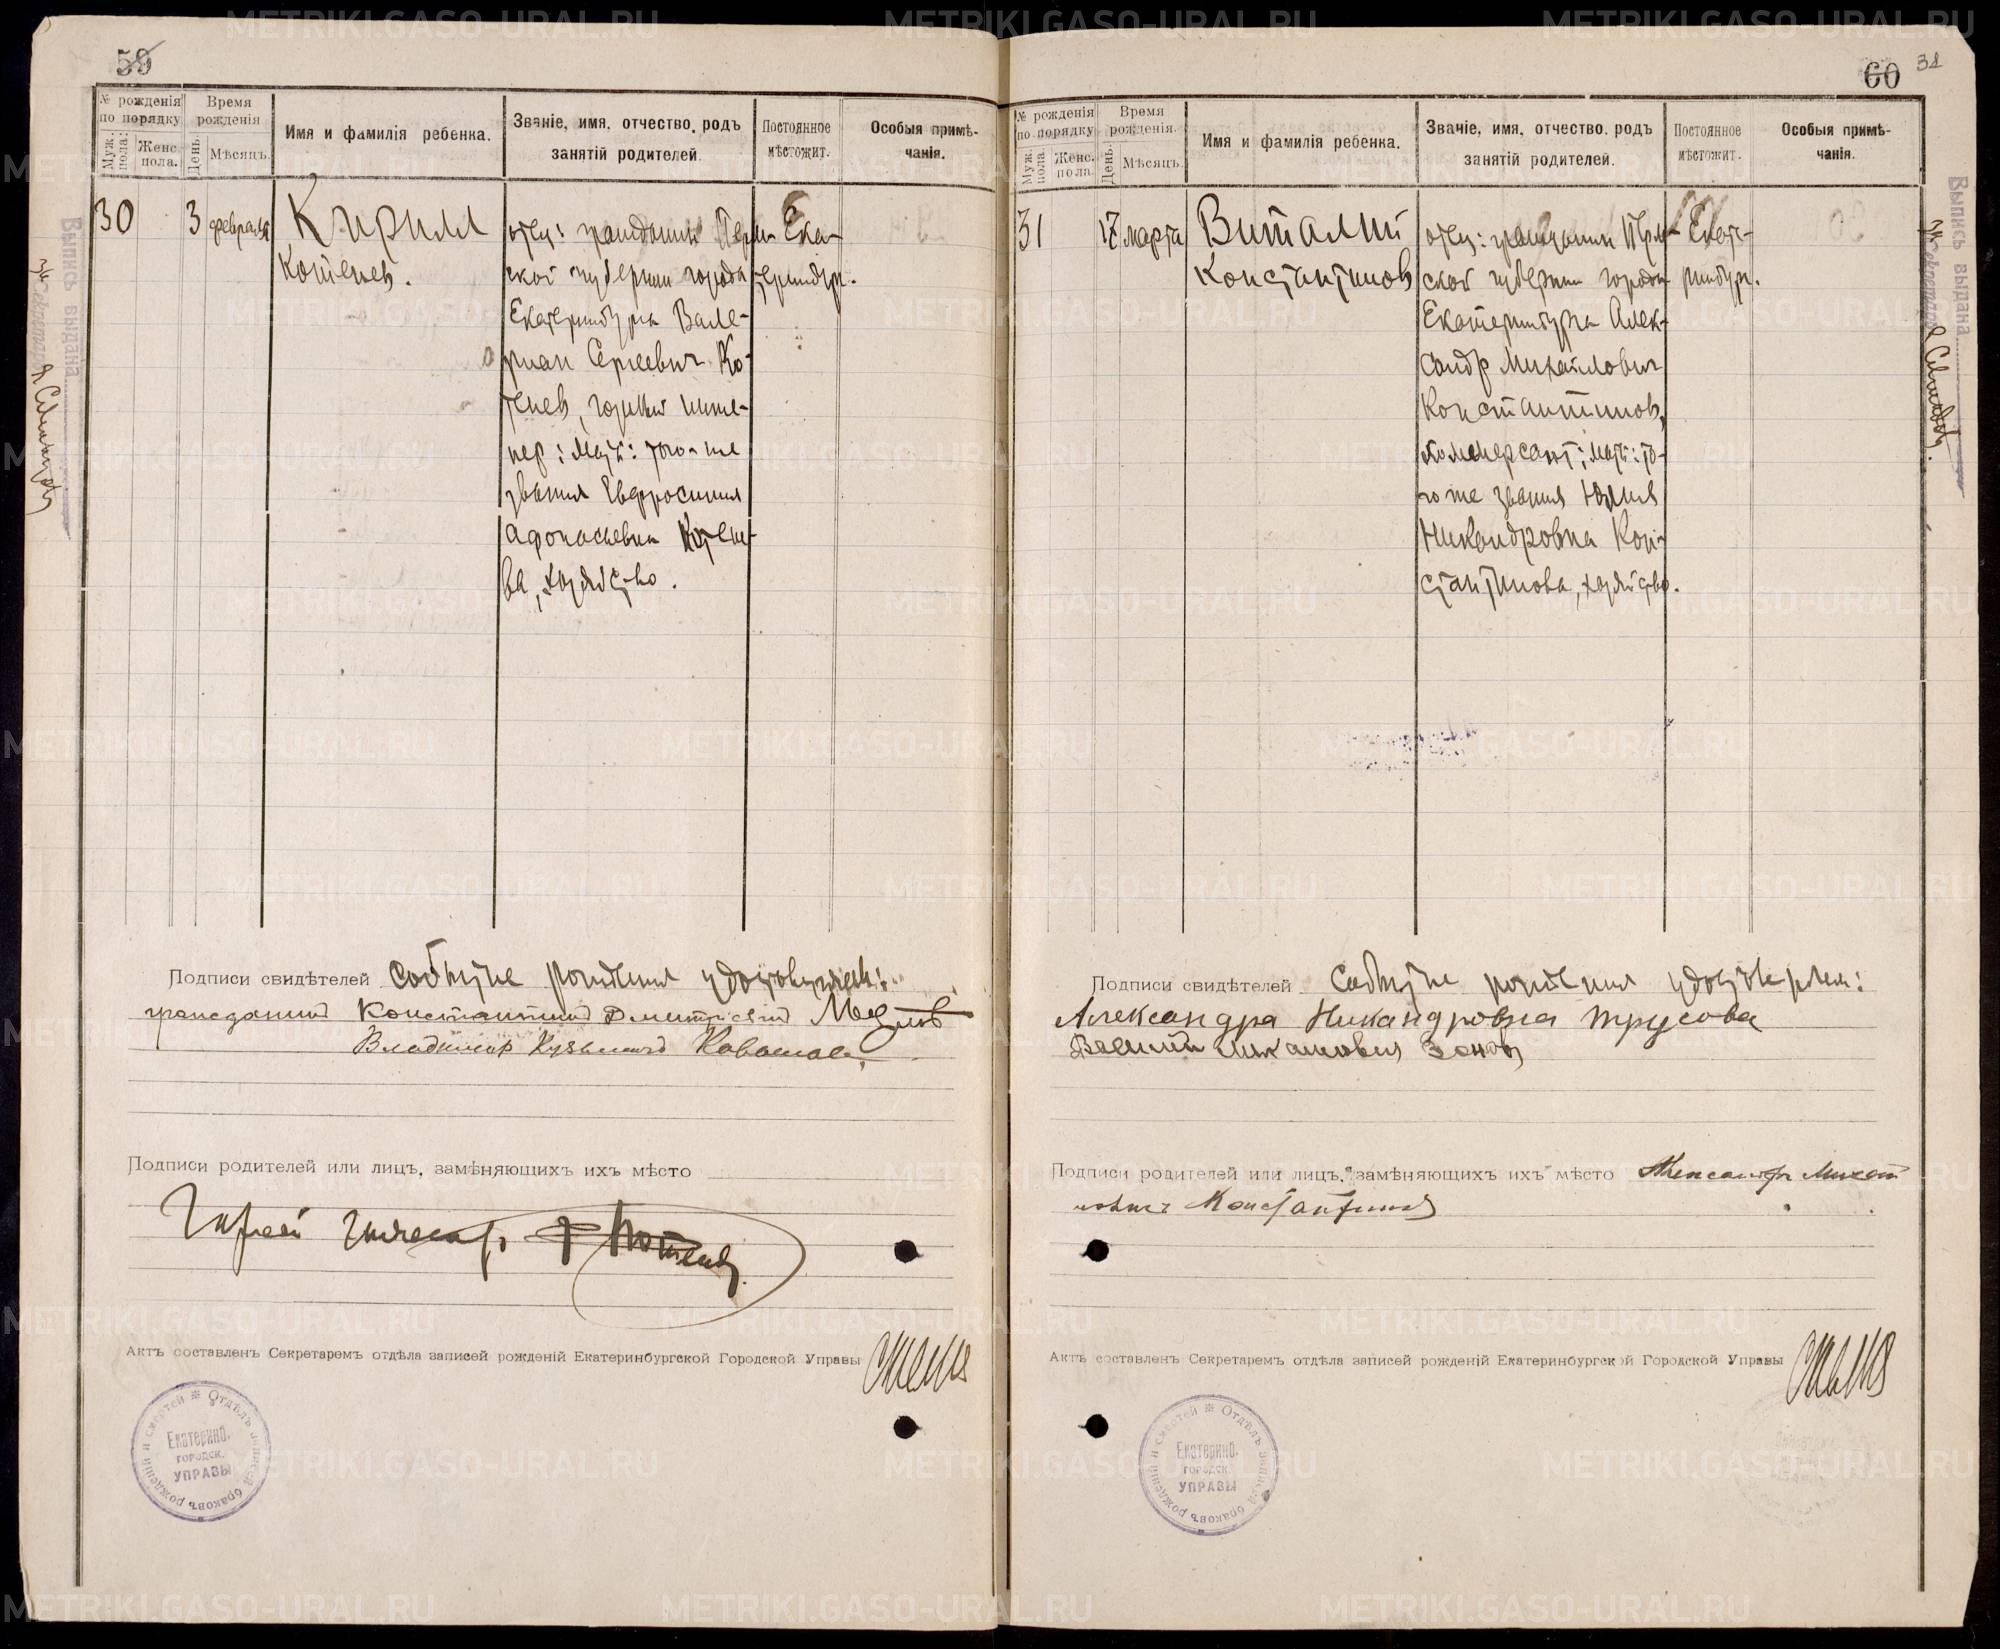 59
№ рожденія по порядку
Муж. пола.
Женс. пола.
Время рожденія
День.
Мѣсяцъ.
Имя и фамилія ребенка.
Званіе, имя, отчество, родъ
занятій родителей.
Постоянное
мѣстожит.
Особыя примѣ-
чанія.
30
3
февраля
Кирилл
Котенев.
отец: гражданин Перм-
ской губернии города
Екатеринбурга Вале-
риан Сергеевич Ко-
тенев, горный инже-
нер; мать: того-же
звания Евфросиния
Афонасьевна Котене-
ва, хозяйство.
Ека-
теринбург.
Выпись выдана
Подписи свидѣтелей Событие рождения удостоверяем:
гражданин Константин Дмитриевич
Владимир Кузьмич
Подписи родителей или лицъ, замѣняющихъ ихъ мѣсто
Горный инженер Котенев
Актъ составленъ Секретаремъ отдѣла записей рожденій Екатеринбургской Городской Управы
Отдѣлъ записей браковъ рожденій и смертей
Екатеринб.
городск.
УПРАВЫ
60
31
№ рожденія
по порядку
Муж. пола.
Женс. пола.
Время
рожденія.
День.
Мѣсяцъ.
Имя и фамилія ребенка.
Званіе, имя, отчество, родъ
занятій родителей.
Постоянное
мѣстожит.
Особыя примѣ-
чанія.
31
17
марта
Виталий
Константинов
отец: гражданин Перм-
ской губернии города
Екатеринбурга Алек-
сандр Михайлович
Константинов,
коммерсант; мать: то-
го же звания Юлия
Никандровна Кон-
стантинова, хозяйство.
Екате-
ринбург.
Выпись выдана
Подписи свидѣтелей Событие рождения удостоверяем:
Александра Никандровна Трусова
Василий Зонов
Подписи родителей или лицъ, замѣняющихъ ихъ мѣсто Александр Михай
лович Константинов
Актъ составленъ Секретаремъ отдѣла записей рожденій Екатеринбургской Городской Управы
Отдѣлъ записей браковъ рожденій и смертей
Екатеринб.
городск.
УПРАВЫ
METRIKI.GASO-URAL.RU